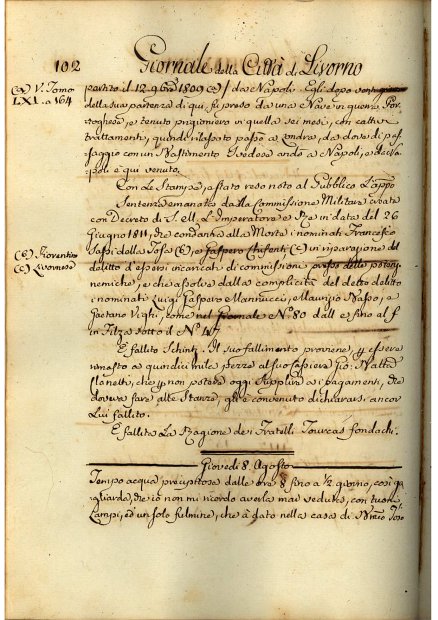 102 Giornale della Città di Livorno
(a) V. Tomo
LXI. a 164
partito il 12. 9bre 1809 (a) da Napoli. Egli dopo
della sua partenza di qui, fu preso da una Nave inglese, Por-
toghese, e tenuto prigioniero in quella sei mesi, con cattivi
trattamenti, quindi rilasciato passò a Londra, da dove di pas-
saggio con un Bastimento Svedese andò a Napoli, e da Na-
poli è qui venuto.
Con Le Stampe, è stato reso noto al Pubblico L'app.o
Sentenza emanata dalla Commissione Militare creata
con Decreto di S. M. L'Imperatore e Re in data del 26
Giugno 1811, che condanna alla Morte i nominati Francesco
(b) Fiorentino
(c) Livornese
Sassi della Tosa (b), e Gaspero Chifenti (c) in riparazione del
delitto d'essersi incaricati di commissioni presso delle potenze
nemiche, e che assolve dalla complicità del detto delitto
i nominati Luigi Gaspero Mannucci, Maurizio, e
Gaetano, come nel Giornale N.o 80 dall e fino al f
in Filza sotto il N.o
È fallito Schintz. Il suo fallimento proviene, per essere
rimasto a quindici mila pezze al suo cassiere Gio:
che non poteva oggi supplire a i pagamenti, che
doveva fare alle Stanze, gli è convenuto dichiararsi ancor
Lui fallito.
È fallita La Ragione dei Fratelli Tourcas fondachi.
Giovedì 8. Agosto
Tempo acqua precipitosa dalle ore 8 fino a 1/2 giorno, così ga-
gliarda, che io non mi ricordo averla mai veduta, con tuoni
Lampi, ed un solo fulmine, che à dato nella casa di